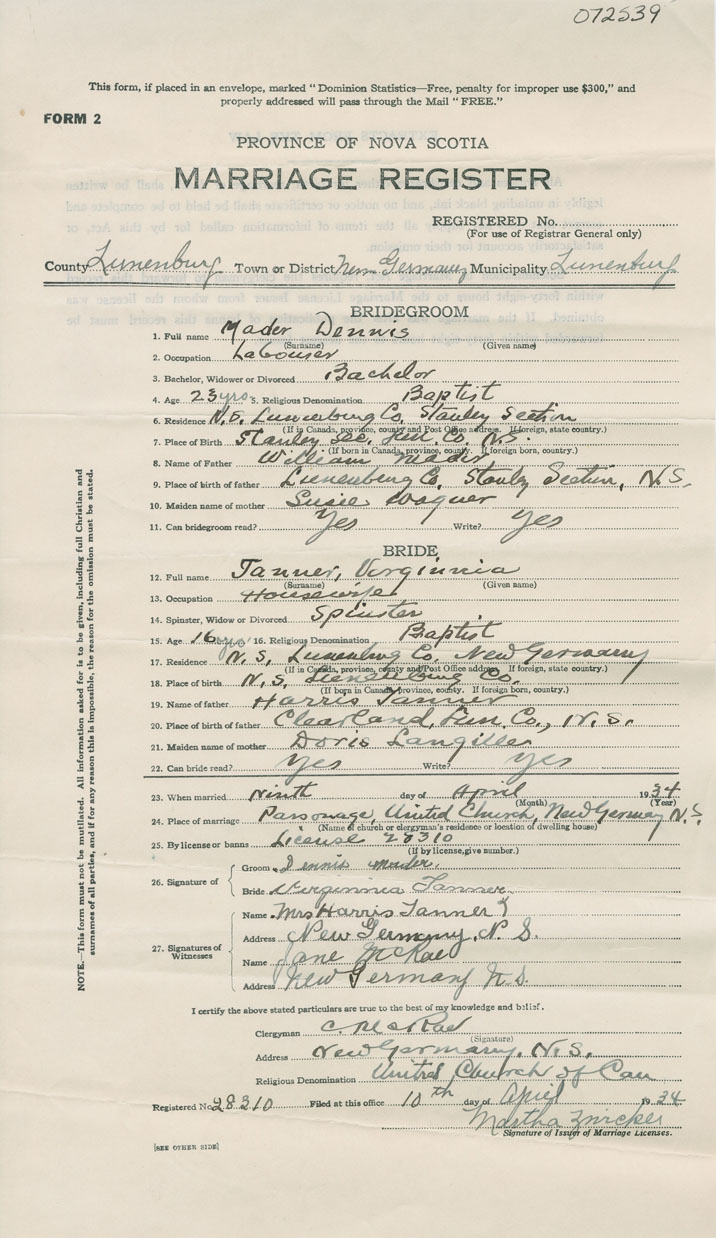 072539
This form, if placed in an envelope, marked "Dominion Statistics—Free, penalty for improper use $300," and
properly addressed will pass through the Mail "FREE."
FORM 2
PROVINCE OF NOVA SCOTIA
MARRIAGE REGISTER
REGISTERED No.
(For use of Registrar General only)
County Lunenburg Town or District New Germany Municipality Lunenburg
BRIDEGROOM
1. Full name Mader Dennis
(Surname) (Given name)
2. Occupation Labourer
3. Bachelor, Widower or Divorced Bachelor
4. Age 23 yrs 5. Religious Denomination Baptist
6. Residence N.S. Lunenburg Co. Stanley Section
(If in Canada, province, county and Post Office address. If foreign, state country.)
7. Place of Birth Stanley Sec. Lun. Co. N.S.
(If born in Canada, province, county. If foreign born, country.)
8. Name of Father William Mader
9. Place of birth of father Lunenburg Co. Stanley Section, N.S.
10. Maiden name of mother Susie Wagner
11. Can bridegroom read? Yes Write? Yes
BRIDE
12. Full name Tanner, Virginnia
(Surname) (Given name)
13. Occupation Housewife
14. Spinster, Widow or Divorced Spinster
15. Age 16 yrs 16. Religious Denomination Baptist
17. Residence N.S. Lunenburg Co. New Germany
(If in Canada, province, county and Post Office address. If foreign, state country.)
18. Place of birth N.S. Lunenburg Co.
(If born in Canada, province, county. If foreign born, country.)
19. Name of father Harris Tanner
20. Place of birth of father Clearland, Lun. Co., N.S.
21. Maiden name of mother Doris Langille
22. Can bride read? Yes Write? Yes
23. When married Ninth day of April 1934
(Month) (Year)
24. Place of marriage Parsonage, United Church, New Germany N.S.
(Name of church or clergyman's residence or location of dwelling house)
25. By license or banns License 28310
(If by license, give number.)
26. Signature of
Groom Dennis Mader.
Bride Virginnia Tanner
27. Signatures of Witnesses
Name Mrs Harris Tanner
Address New Germany, N.S.
Name Jane McRae
Address New Germany N.S.
I certify the above stated particulars are true to the best of my knowledge and belief.
Clergyman C. McRae
(Signature)
Address New Germany, N.S.
Religious Denomination United Church of Can
Registered No. 28310 Filed at this office 10th day of April 1934
Martha Zwicker
Signature of Issuer of Marriage Licenses.
[SEE OTHER SIDE]
NOTE.—This form must not be mutilated. All information asked for is to be given, including full Christian and
surnames of all parties, and if for any reason this is impossible, the reason for the omission must be stated.